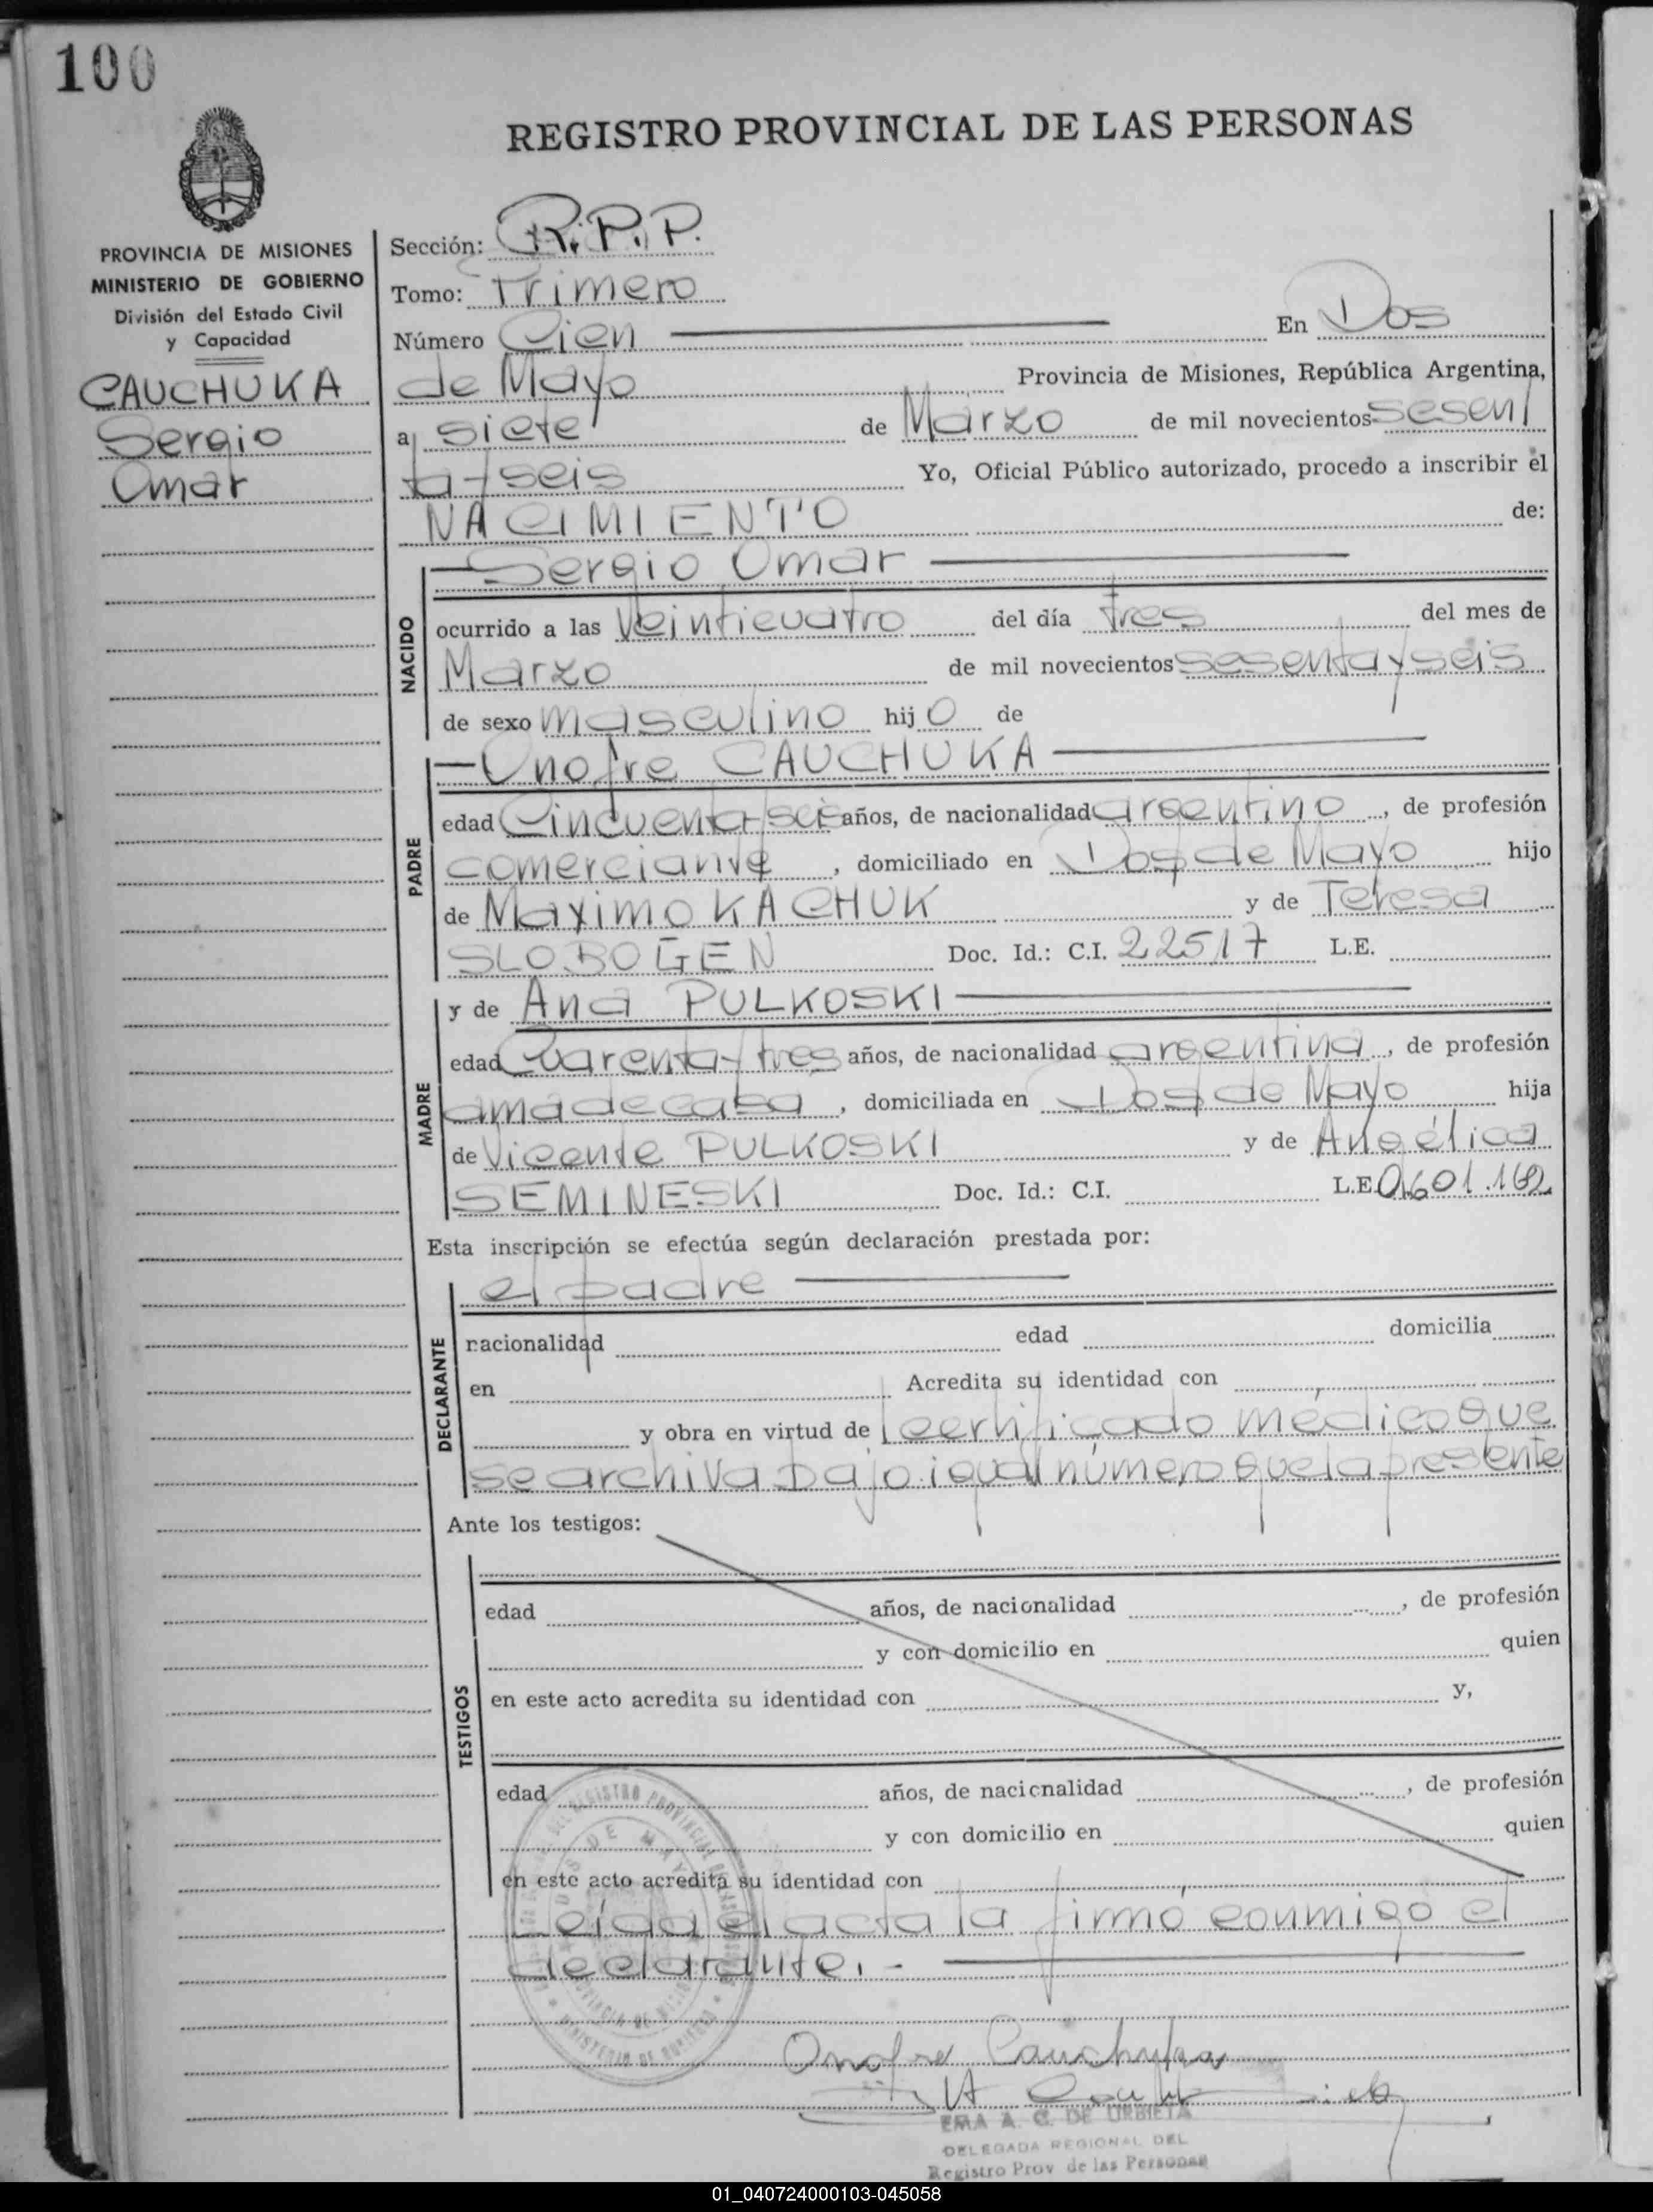 100
REGISTRO PROVINCIAL DE LAS PERSONAS
PROVINCIA DE MISIONES
MINISTERIO DE GOBIERNO
División del Estado Civil
y Capacidad
CAUCHUKA
Sergio
Omar
Sección: R.P.P.
Tomo: Primero
Número Cien En Dos
de Mayo Provincia de Misiones, República Argentina,
a siete de Marzo de mil novecientos sesen
ta y seis Yo, Oficial Público autorizado, procedo a inscribir el
NACIMIENTO de:
Sergio Omar
NACIDO
ocurrido a las Veinticuatro del día tres del mes de
Marzo de mil novecientos sesenta y seis
de sexo masculino hijo de
Onofre CAUCHUKA
PADRE
edad Cincuenta y seis años, de nacionalidad argentino, de profesión
comerciante, domiciliado en Dos de Mayo hijo
de Maximo KACHUK y de Teresa
SLOBOGEN Doc. Id.: C.I. 22517 L.E.
y de Ana PULKOSKI
MADRE
edad Cuarenta y tres años, de nacionalidad argentina, de profesión
ama de casa, domiciliada en Dos de Mayo hija
de Vicente PULKOSKI y de Angélica
SEMINESKI Doc. Id.: C.I. L.E.
Esta inscripción se efectúa según declaración prestada por:
el padre
DECLARANTE
nacionalidad edad domicilia
en Acredita su identidad con
y obra en virtud de certificado médico que
se archiva bajo igual número que la presente
Ante los testigos:
TESTIGOS
edad años, de nacionalidad , de profesión
y con domicilio en quien
en este acto acredita su identidad con y,
edad años, de nacionalidad , de profesión
y con domicilio en quien
en este acto acredita su identidad con
Leída el acta la firmó conmigo el
declarante.-
REGISTRO PROVINCIAL DE LAS PERSONAS
DOS DE MAYO
PROVINCIA DE MISIONES
MINISTERIO DE GOBIERNO
Onofre Cauchuka
EMA A. C. DE URBIETA
DELEGADA REGIONAL DEL
Registro Prov de las Personas
01_040724000103-045058